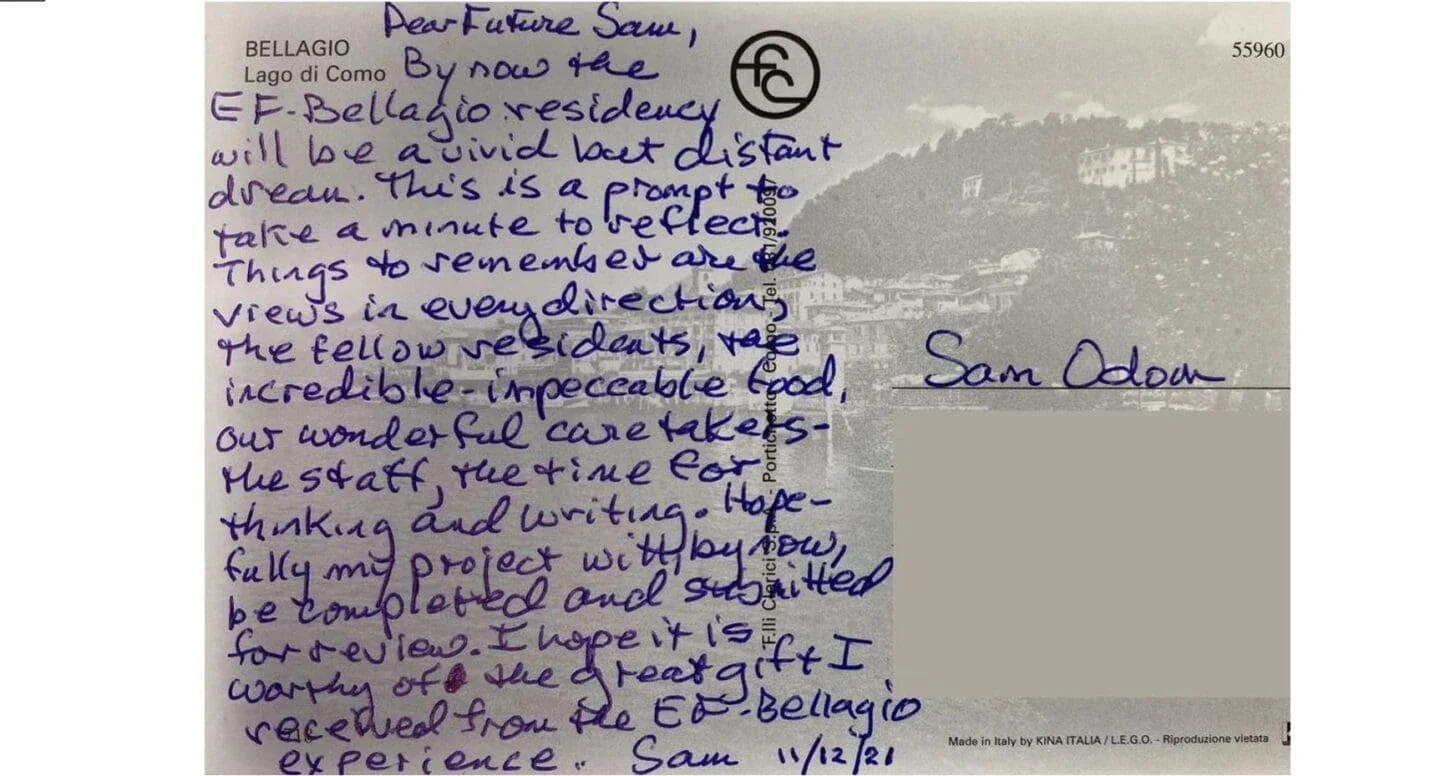 BELLAGIO
Lago di Como
fc
55960
Dear Future Sam,
By now the
EF-Bellagio residency
will be a vivid but distant
dream. This is a prompt to
take a minute to reflect.
Things to remember are the
views in every direction,
the fellow residents, the
incredible-impeccable food,
our wonderful caretakers-
the staff, the time for
thinking and writing. Hope-
fully my project will, by now,
be completed and submitted
for review. I hope it is
worthy of the great gift I
received from the EF-Bellagio
experience. Sam 11/12/21
Sam Odom
F.lli Clerici S.p.A. - Portichetto Como - Tel.
Made in Italy by KINA ITALIA / L.E.G.O. - Riproduzione vietata